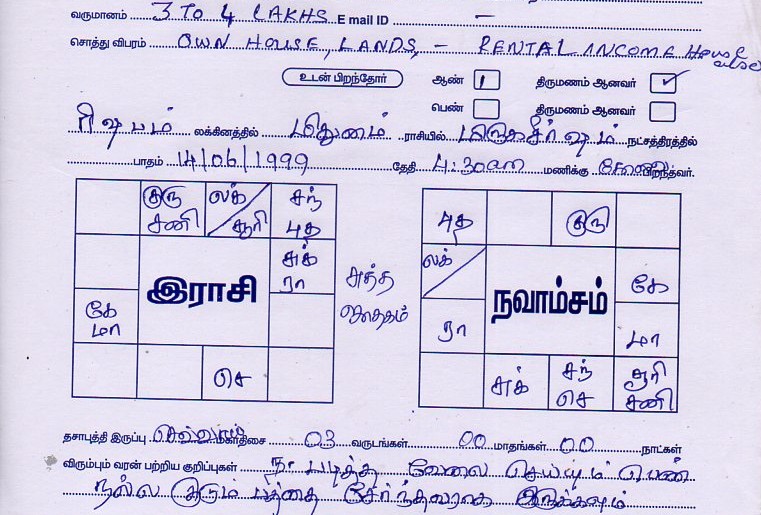 வருமானம் 3 TO 4 LAKHS E mail ID –
சொத்து விபரம் OWN HOUSE, LANDS, – RENTAL INCOME House also
உடன் பிறந்தோர் ஆண் 1 திருமணம் ஆனவர் ✓
பெண் திருமணம் ஆனவர்
ரிஷபம் லக்கினத்தில் மிதுனம் ராசியில் மிருகசீர்ஷம் நட்சத்திரத்தில்
பாதம் 14/06/1999 தேதி 4:30am மணிக்கு பிறந்தவர்.
குரு சனி லக் சூரி சந் புத
சுக் ரா
இராசி
கே மா
செ
சுத்த ஜாதகம்
புத குரு
லக் கே
நவாம்சம்
ரா மா
சுக் சந் செ சூரி சனி
தசாபுத்தி இருப்பு செவ்வாய் மகாதிசை 03 வருடங்கள் 00 மாதங்கள் 00 நாட்கள்
விரும்பும் வரன் பற்றிய குறிப்புகள் படித்த வேலை செய்யும் பெண்
நல்ல குடும்பத்தை சேர்ந்தவராக இருக்கவும்